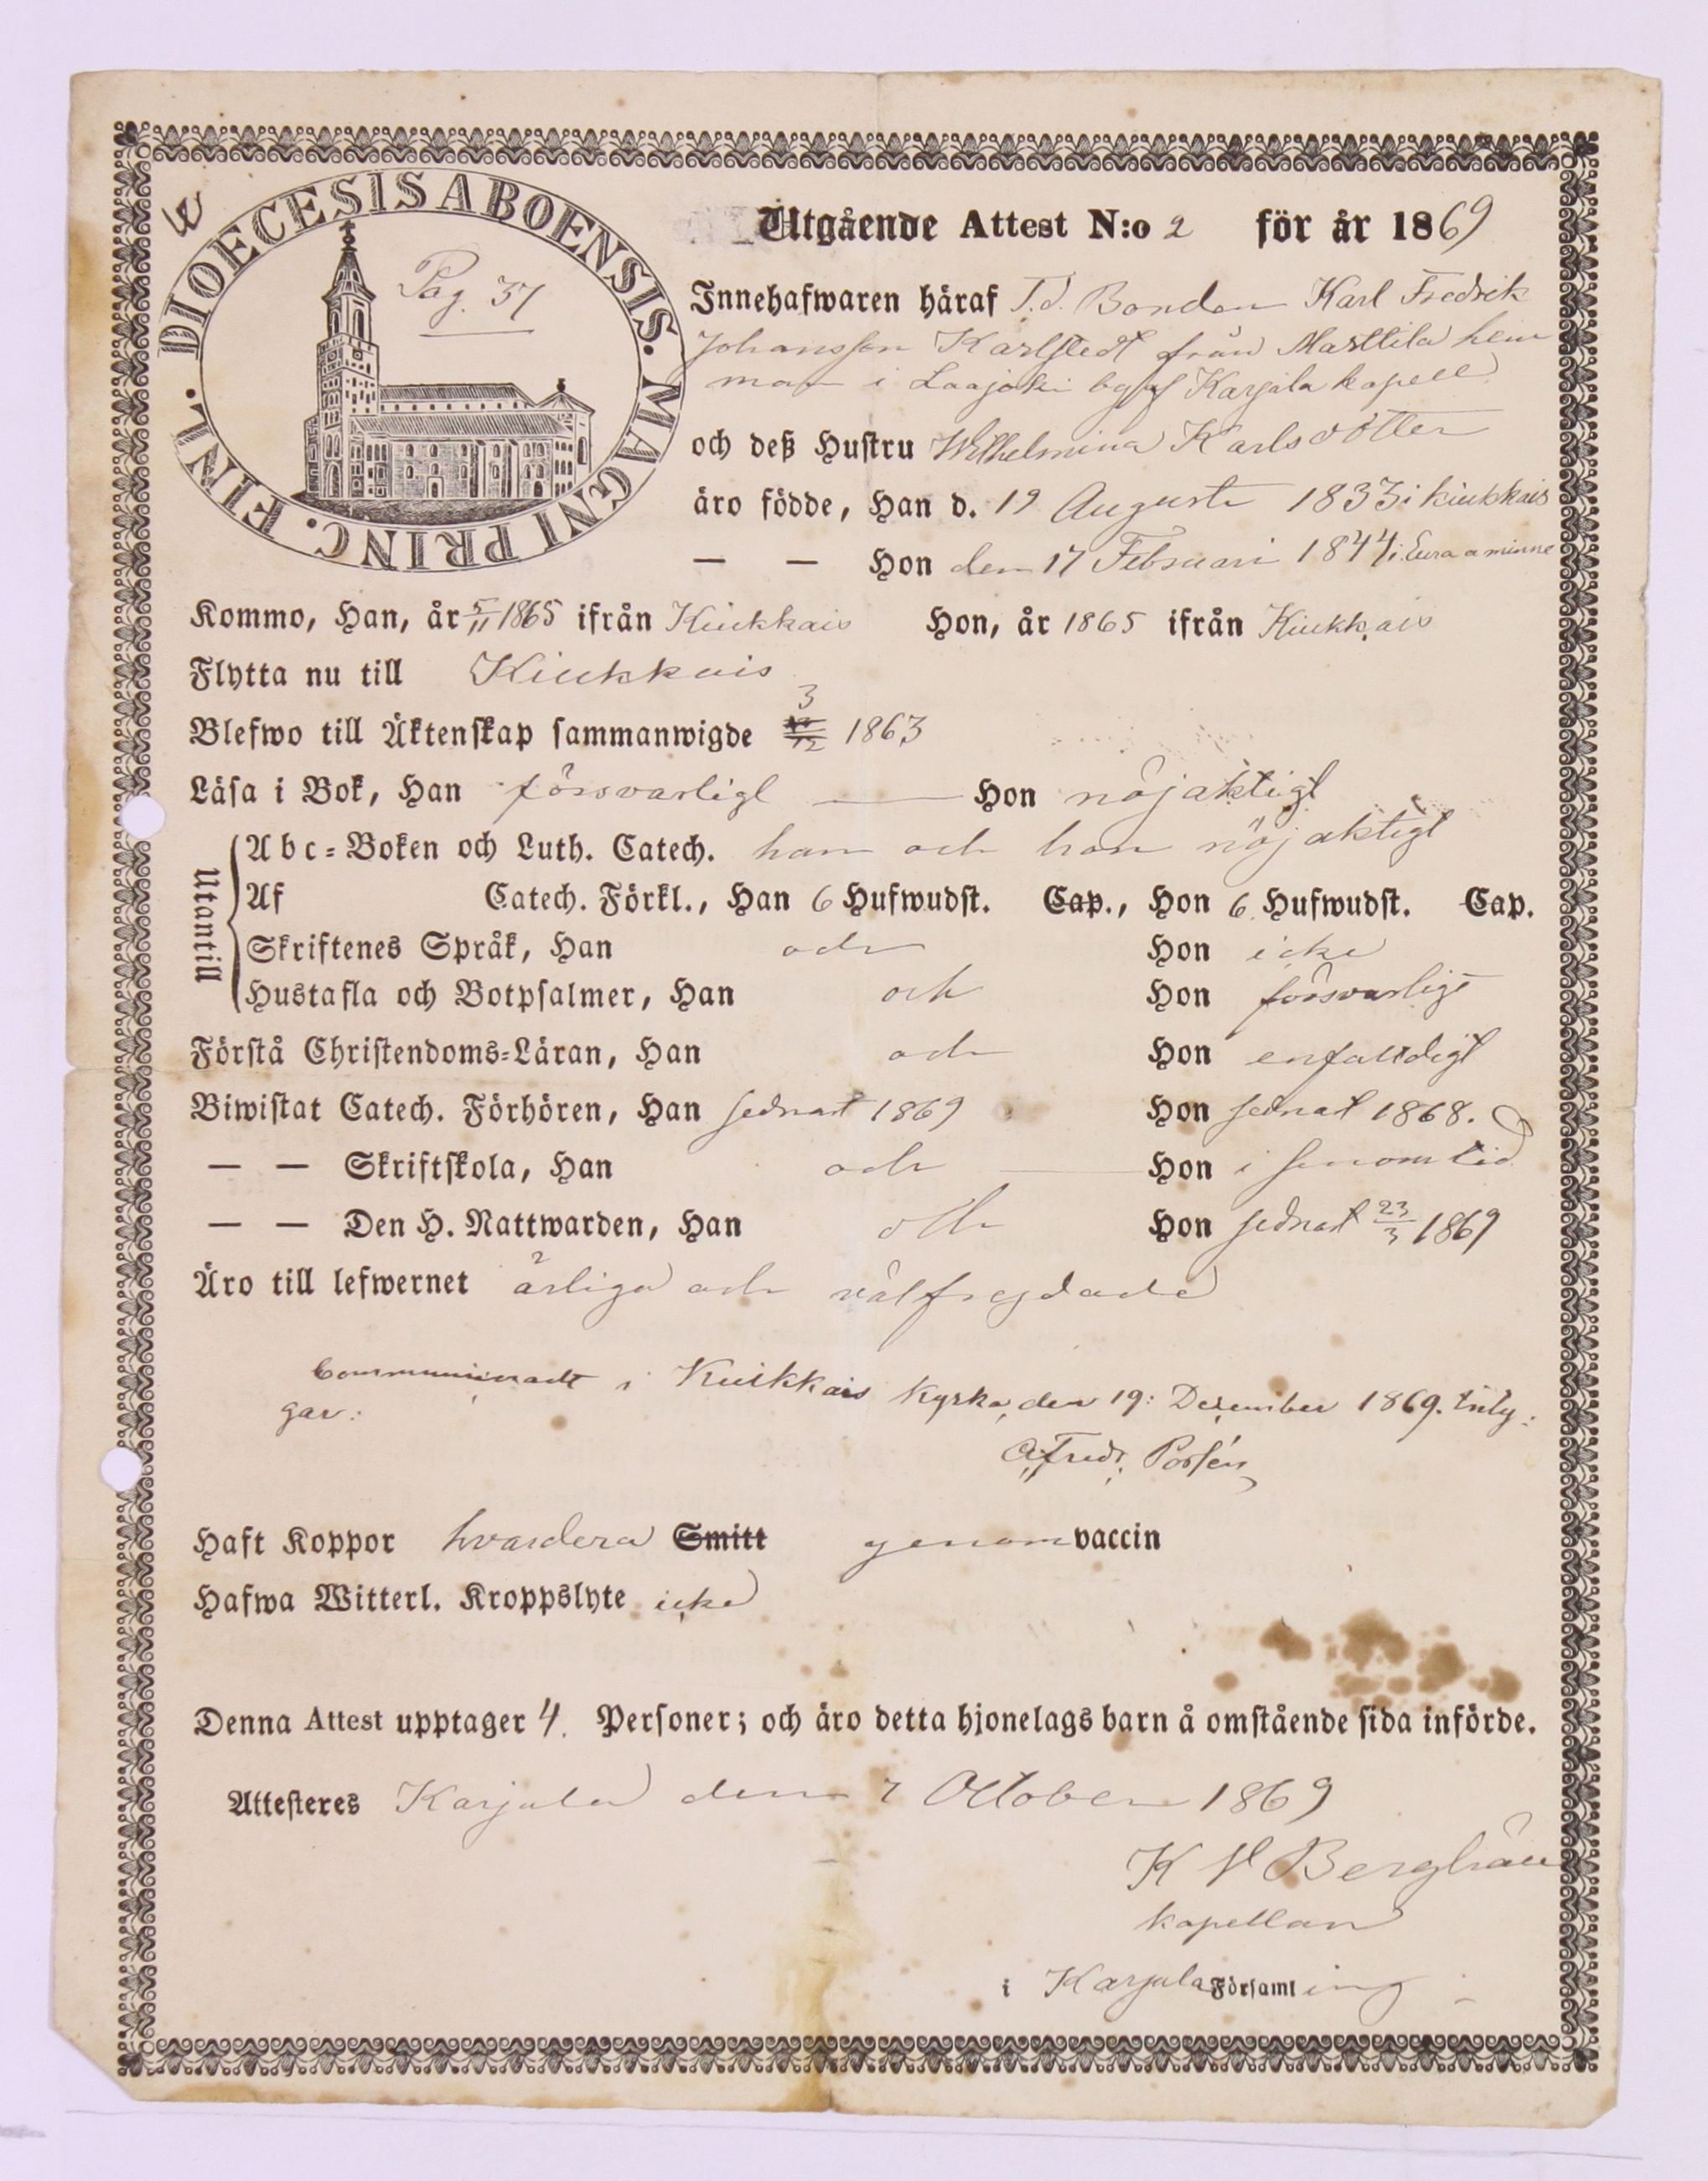 DIOECESIS ABOENSIS. MAGNI PRINC. FINL.
Pag. 37
Utgående Attest N:o 2 för år 1869
Innehafwaren häraf T.d. Bonden Karl Fredrik
Johansson Karlstedt från Marttila hem
man i Laajoki by af Karjala kapell
och deß Hustru Wilhelmina Karlsdotter
äro födde, Han d. 19 Augusti 1833 i Kiukkais
— — Hon den 17 Februari 1844 i Eura aminne
Kommo, Han, år 5/11 1865 ifrån Kiukkais Hon, år 1865 ifrån Kiukkais
Flytta nu till Kiukkais
Blefwo till Äktenskap sammanwigde 3/12 1863
Läsa i Bok, Han försvarligt — Hon nöjaktigt
Utantill
Abc-Boken och Luth. Catech. han och hon nöjaktigt
Af Catech. Förkl., Han 6 Hufwudst. Cap., Hon 6 Hufwudst. Cap.
Skriftenes Språk, Han och Hon icke
Hustafla och Botpsalmer, Han och Hon försvarligt
Förstå Christendoms-Läran, Han och Hon enfaldigt
Biwistat Catech. Förhören, Han sednast 1869 Hon sednast 1868.
— — Skriftskola, Han och — Hon i sinom tid
— — Den H. Nattwarden, Han och Hon sednast 23/3 1869
Äro till lefwernet ärliga och välfrejdade
Communicerade i Kiukkais kyrka, den 19: December 1869. bety:
gar:
Fredr. Porsén
Haft Koppor hvardera Smitt genom vaccin
Hafwa Witterl. Kroppslyte icke
Denna Attest upptager 4. Personer; och äro detta hjonelags barn å omstående sida införde.
Attesteres Karjala den 7 October 1869
K Bergh
kapellan
i Karjala Församling